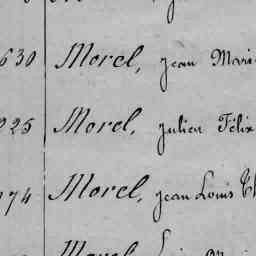 630 Morel, Jean Mari
225 Morel, Julien Félix
174 Morel, Jean Louis
Morel,